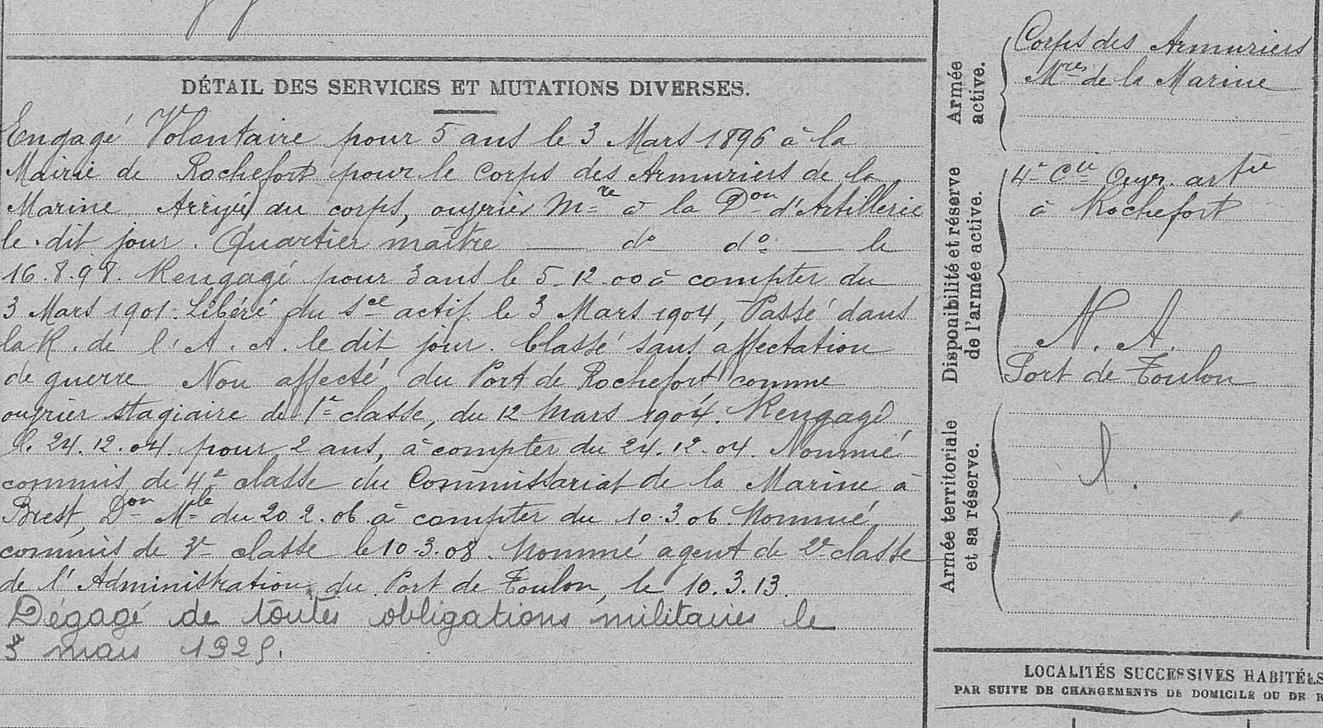 DÉTAIL DES SERVICES ET MUTATIONS DIVERSES.
Engagé Volontaire pour 5 ans le 3 Mars 1896 à la
Mairie de Rochefort pour le Corps des Armuriers de la
Marine. Arrivé au corps, ouvrier Mre à la Don d'Artillerie
le dit jour. Quartier maître — do do — le
16.8.98. Rengagé pour 3 ans le 5-12-00 à compter du
3 Mars 1901. Libéré du sce actif le 3 Mars 1904, Passé dans
la R. de l'A. A. le dit jour. Classé sans affectation
de guerre Non affecté, du Port de Rochefort comme
ouvrier stagiaire de 1e classe, du 12 Mars 1904. Rengagé,
le 24.12.04 pour 2 ans, à compter du 24.12.04. Nommé
commis de 4e classe du Commissariat de la Marine à
Brest, Don Mlle du 20.2.06 à compter du 10.3.06 Nommé,
commis de 3e classe le 10.3.08. Nommé agent de 2e classe
de l'Administration du Port de Toulon, le 10.3.13.
Dégagé de toutes obligations militaires le
3 mars 1925.
Armée active.
Corps des Armuriers
Mres de la Marine
Disponibilité et réserve de l'armée active.
4e Cie Ouvr. artrie
à Rochefort
N. A.
Port de Toulon
Armée territoriale et sa réserve.
LOCALITÉS SUCCESSIVES HABITÉES
PAR SUITE DE CHANGEMENTS DE DOMICILE OU DE R